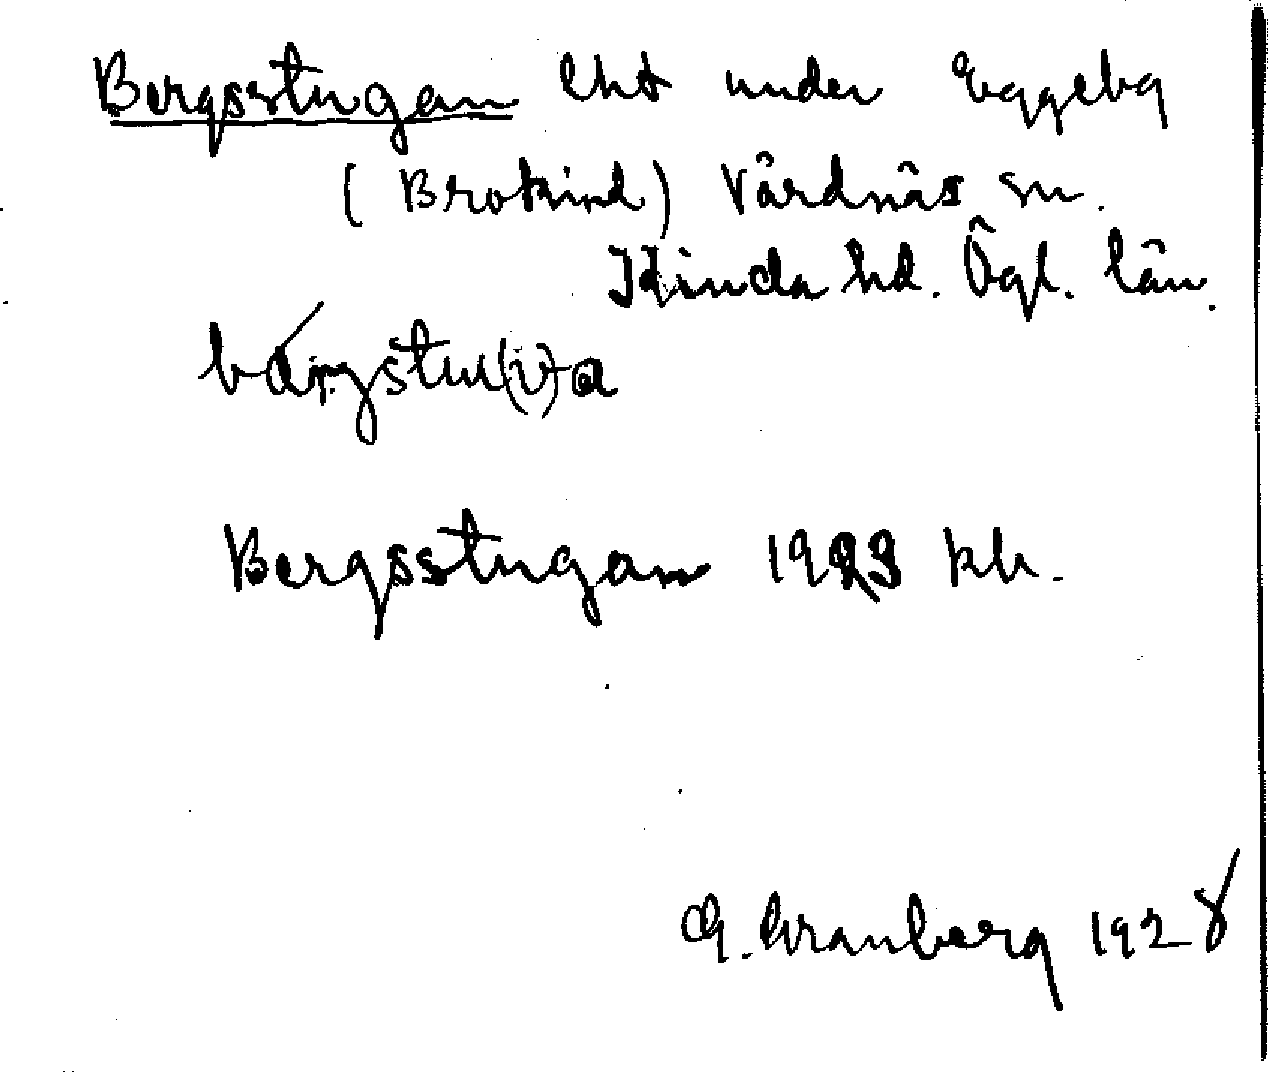 Bergsstugan lht under Eggeby
(Brokind) Vårdnäs sn.
Kinda hd. Ögl. län.
Bergsstugan 1923 kb.
G. Granberg 1928